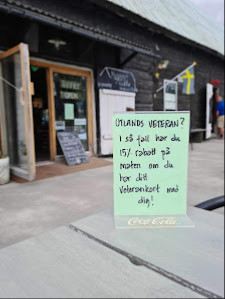 UTLANDS VETERAN?
I så fall har du
15% rabatt på
maten om du
har ditt
Veterankort med
dig!
Coca-Cola
OPEN